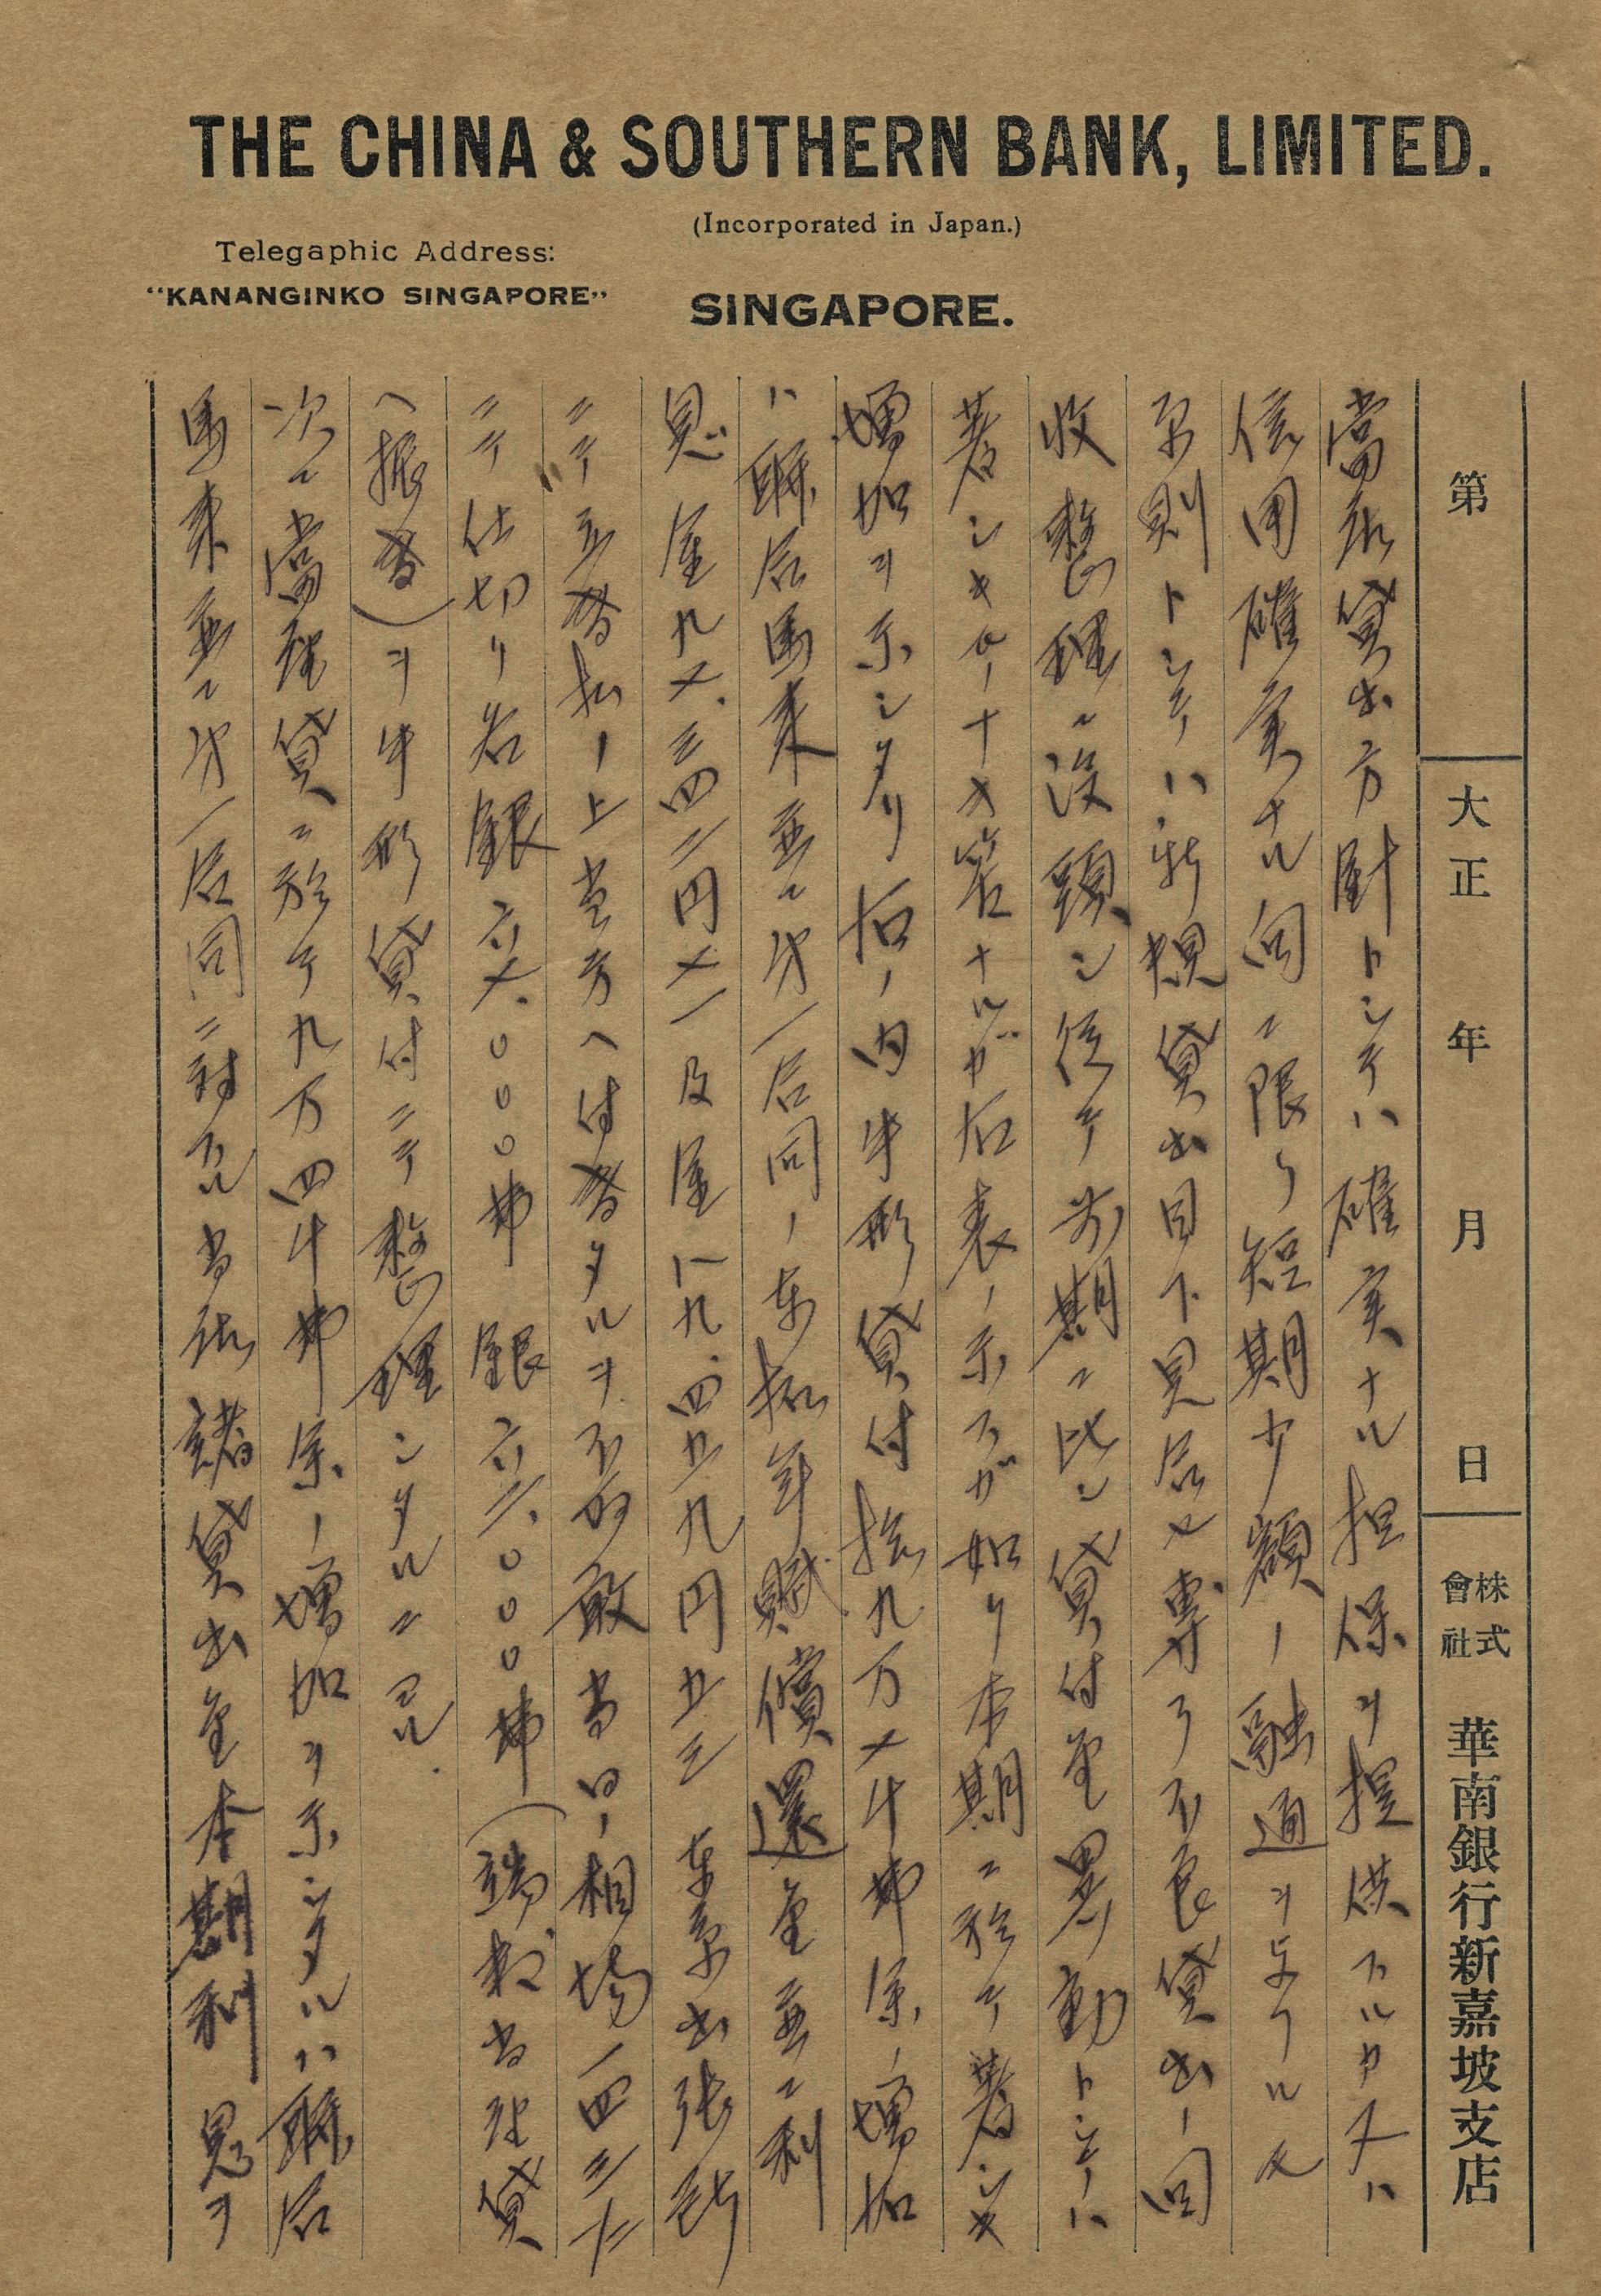 THE CHINA & SOUTHERN BANK, LIMITED.
(Incorporated in Japan.)
Telegaphic Address:
"KANANGINKO SINGAPORE"
SINGAPORE.
第
大正 年 月 日
株式會社 華南銀行新嘉坡支店
當店貸出方針トシテハ確実ナル担保ヲ提供スルカ又ハ
信用確実ナル向ニ限リ短期少額ノ融通ヲ与フル
原則トシテハ新規貸出目下見合セ専ラ不良貸出ノ回
收整理ニ没頭シ従テ前期ニ比シ貸付金異動トシテハ
著シキモノナキ筈ナルガ右表ノ示スガ如リ本期ニ於テ著シキ
増加ヲ示シタリ右ノ内手形貸付拾九万七千弗余ノ増加
ハ聯合馬来並ニ第一合同ノ東拓年賦償還金並ニ利
息 金九七、三四二円七一及金一九、四五九円五三 東京出張所
ニテ立替払ノ上当方ヘ付替タルヲ不取敢当日ノ相場一四三
ニテ仕切リ各銀六七、〇〇〇弗 銀六三、〇〇〇弗(端数当座貸
ヘ振替)ヲ手形貸付ニテ整理シタルニヨル
次ニ當座貸ニ於テ九万四千弗余ノ増加ヲ示シタルハ聯合
馬来並ニ第一合同ニ対スル当店諸貸出金本期利息ヲ